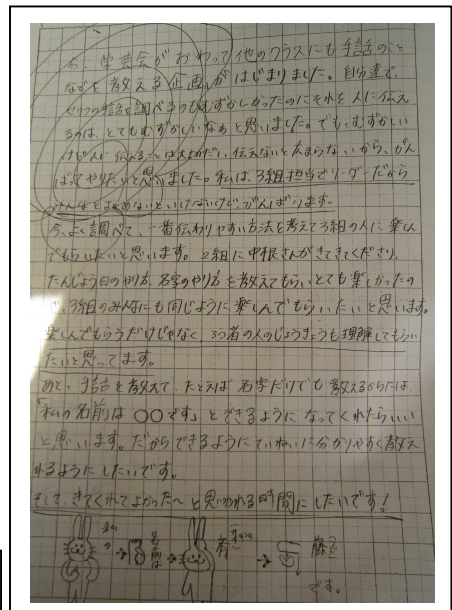 今、学芸会がおわって他のクラスにも手話のこと
などを教える企画がはじまりました。自分達で、
セリフの手話を調べるのもむずかしかったのにそれを人に伝え
るのは、とてもむずかしいなぁと思いました。でも、むずかしい
けど人に伝えることは大切だし、伝えないと広まらないから、がん
ばってやりたいと思いました。私は、3組担当でリーダーだから
みんなをまとめないといけないけど、がんばります。
今、よく調べて、一番伝わりやすい方法を考えて3組の人に楽しん
でもらいたいと思います。2組に中根さんがきてくださり、
たんじょう日のやり方、名字のやり方を教えてもらい、とても楽しかったの
で、3組のみんなにも同じように楽しんでもらいたいと思います。
楽しんでもらうだけじゃなく、ろう者の人のじょうきょうも理解してもらい
たいと思ってます。
あと、手話を教えて、たとえば名字だけでも教えるからには、
「私の名前は〇〇です」とできるようになってくれたらいい
と思います。だからできるようにていねいに分かりやすく教え
れるようにしたいです。
そして、きてくれてよかった〜と思われる時間にしたいです!
私の → 名前は → 斉 → 藤
です。